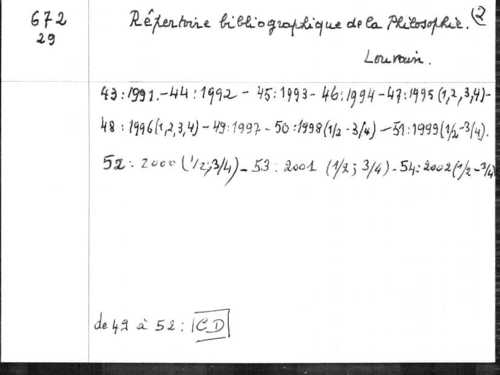 672
29
Répertoire bibliographique de la Philosophie. (2
Louvain.
43:1991.-44:1992 - 45:1993 - 46:1994 - 47:1995 (1,2,3,4)-
48:1996(1,2,3,4) - 49:1997 - 50:1998(1/2-3/4) - 51:1999(1/2-3/4).
52:2000(1/2;3/4) - 53:2001 (1/2; 3/4) - 54:2002(1/2-3/4)
de 49 à 52: CD